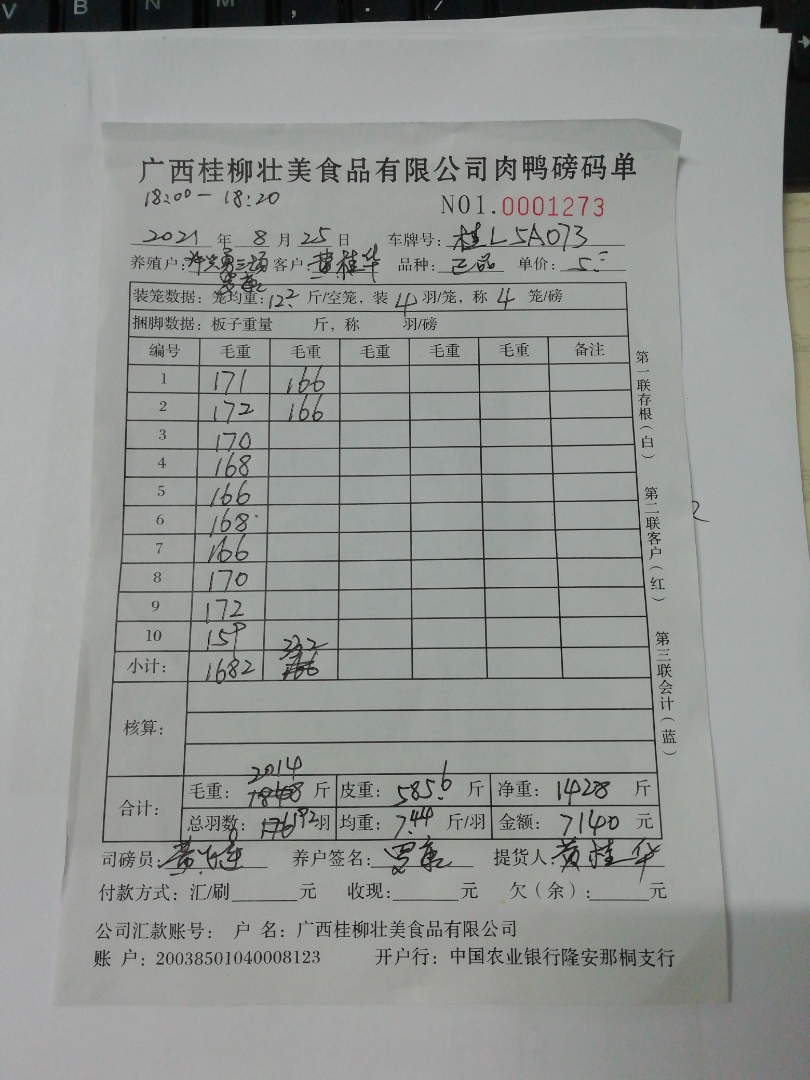 广西桂柳壮美食品有限公司肉鸭磅码单
18:00-18:20
NO1.0001273
2021年8月25日 车牌号:桂L5A073
养殖户: 客户:黄桂华 品种:正品 单价:5.=
装笼数据:笼均重:12.2斤/空笼,装4羽/笼,称4笼/磅
捆脚数据:板子重量 斤,称 羽/磅
编号 毛重 毛重 毛重 毛重 毛重 备注
1 171 166
2 172 166
3 170
4 168
5 166
6 168
7 166
8 170
9 172
10 159
小计: 1682 332
核算:
合计: 毛重:2014斤 皮重:585.6斤 净重:1428斤
总羽数:192羽 均重:7.44斤/羽 金额:7140元
司磅员: 养户签名:罗康 提货人:黄桂华
付款方式:汇/刷 元 收现: 元 欠(余): 元
公司汇款账号: 户 名:广西桂柳壮美食品有限公司
账 户:20038501040008123 开户行:中国农业银行隆安那桐支行
第一联存根(白)
第二联客户(红)
第三联会计(蓝)